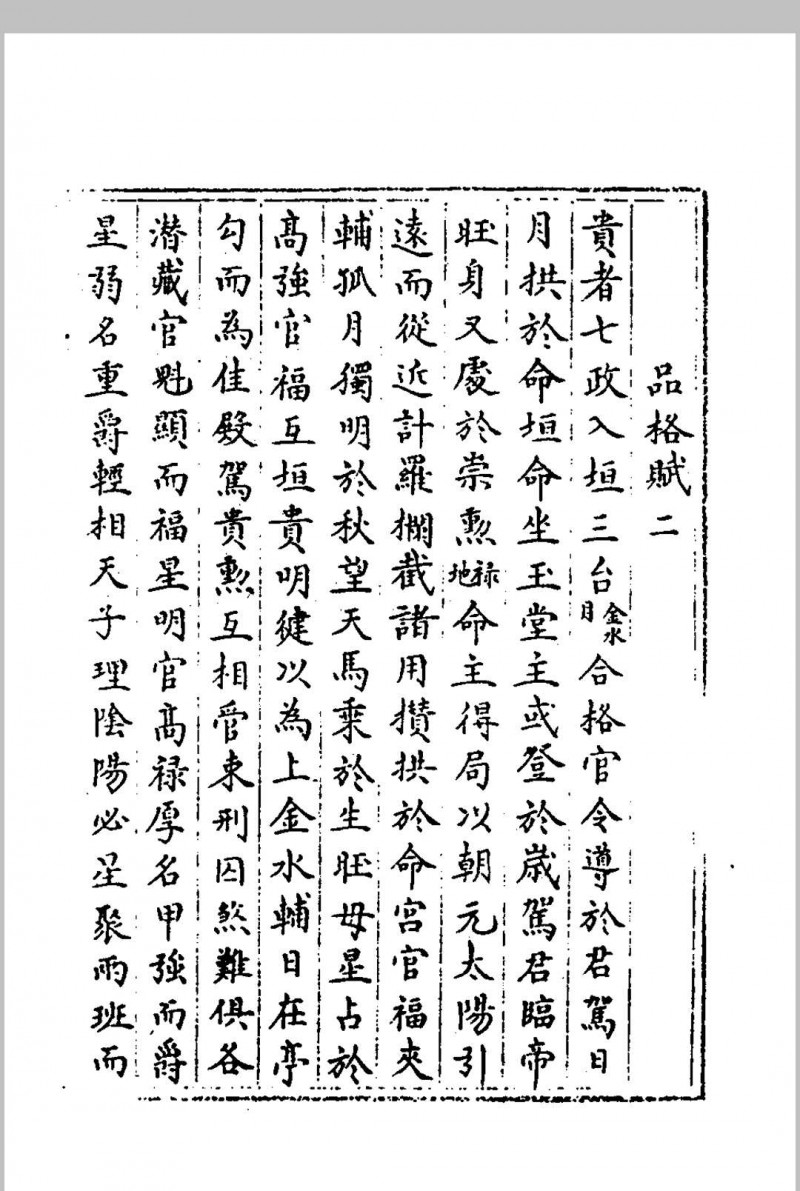 品格賦二
貴者七政入垣三台金水月合格官令遵於君駕日
月拱於命垣命坐玉堂主或登於歲駕君臨帝
旺身又處於崇勲祿地命主得局以朝元太陽引
遠而從近計羅攔截諸用攅拱於命宮官福夾
輔狐月獨明於秋望天馬乘於生旺母星占於
高強官福互垣貴明健以為上金水輔日在亭
勾而為佳殿駕貴勲互相管束刑囚煞難俱各
潜藏官魁顯而福星明官高祿厚名甲強而爵
星弱名重爵輕相天子理陰陽必星聚兩班而